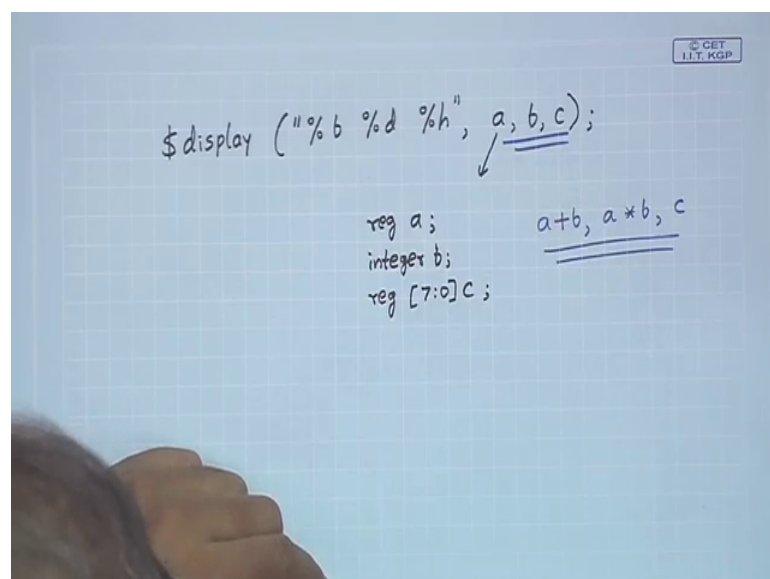 © CET
I.I.T. KGP
$display ("%b %d %h", a, b, c);
reg a;
integer b;
reg [7:0] c;
a+b, a*b, c